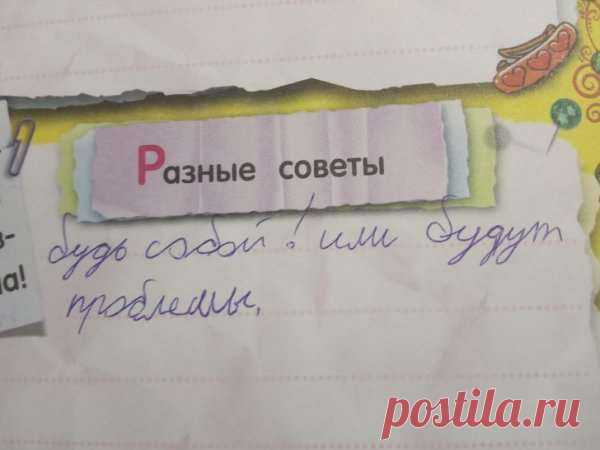 Разные советы
будь собой! или будут
проблемы.
в-
а!
postila.ru